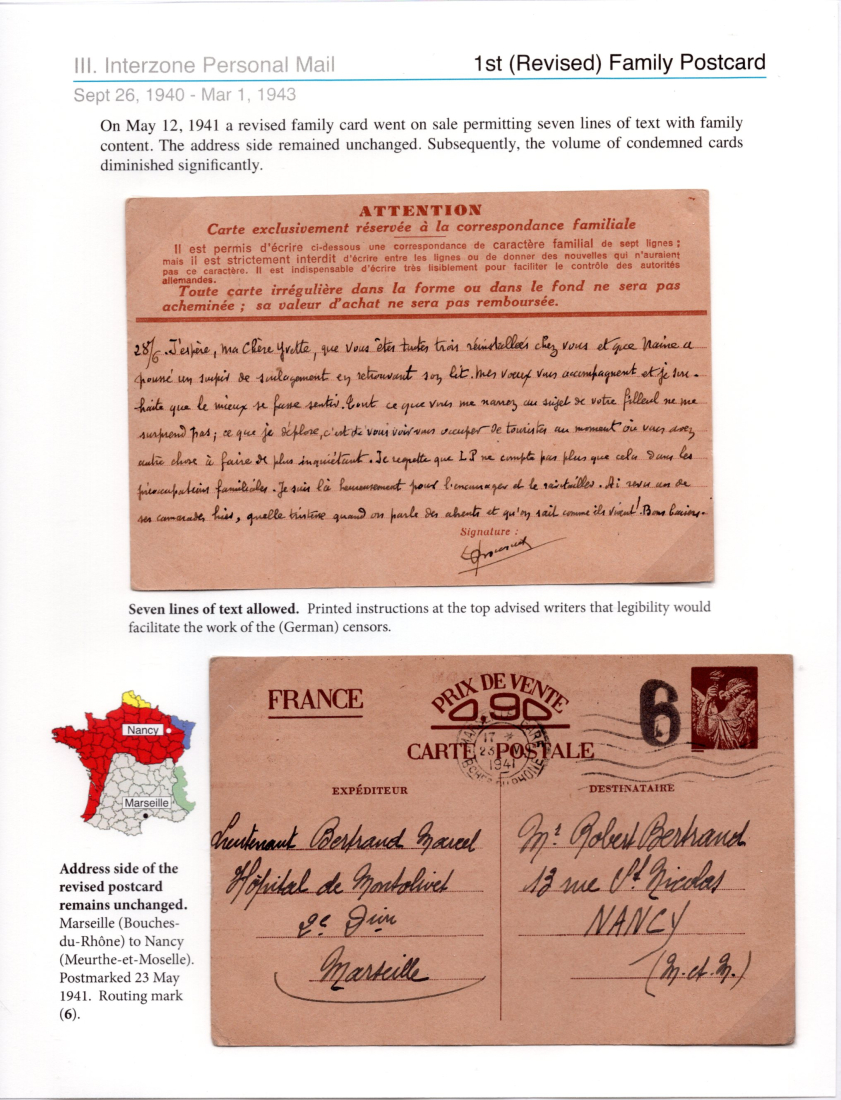 III. Interzone Personal Mail
1st (Revised) Family Postcard
Sept 26, 1940 - Mar 1, 1943
On May 12, 1941 a revised family card went on sale permitting seven lines of text with family
content. The address side remained unchanged. Subsequently, the volume of condemned cards
diminished significantly.
ATTENTION
Carte exclusivement réservée à la correspondance familiale
Il est permis d'écrire ci-dessous une correspondance de caractère familial de sept lignes ;
mais il est strictement interdit d'écrire entre les lignes ou de donner des nouvelles qui n'auraient
pas ce caractère. Il est indispensable d'écrire très lisiblement pour faciliter le contrôle des autorités
allemandes.
Toute carte irrégulière dans la forme ou dans le fond ne sera pas
acheminée ; sa valeur d'achat ne sera pas remboursée.
28/6. J'espère, ma Chère Yvette, que vous êtes toutes trois réinstallées chez vous et que a
poussé un soupir de soulagement en retrouvant son lit. Mes vœux vous accompagnent et je sou-
haite que le mieux se fasse sentir. Tout ce que vous me narrez au sujet de votre filleul ne me
surprend pas ; ce que je déplore, c'est de vous voir vous occuper de touristes au moment où vous avez
autre chose à faire de plus inquiétant. Je regrette que LP ne compte pas plus que cela dans les
préoccupations familiales. Je suis là heureusement pour l'encourager et le ravitailler. Ai revu un de
ses camarades hier, quelle tristesse quand on parle des absents et qu'on sait comme ils vivent ! Bons baisers.
Signature :
Seven lines of text allowed. Printed instructions at the top advised writers that legibility would
facilitate the work of the (German) censors.
Nancy
Marseille
Address side of the
revised postcard
remains unchanged.
Marseille (Bouches-
du-Rhône) to Nancy
(Meurthe-et-Moselle).
Postmarked 23 May
1941. Routing mark
(6).
FRANCE
PRIX DE VENTE
0,90
CARTE POSTALE
6
17 *
23 V
1941
BCHES DU RHÔNE
EXPÉDITEUR
DESTINATAIRE
Lieutenant Bertrand Marcel
Hôpital de Montolivet
2e Divon
Marseille
Mr Robert Bertrand
13 rue St Nicolas
NANCY
(M. et. M.)